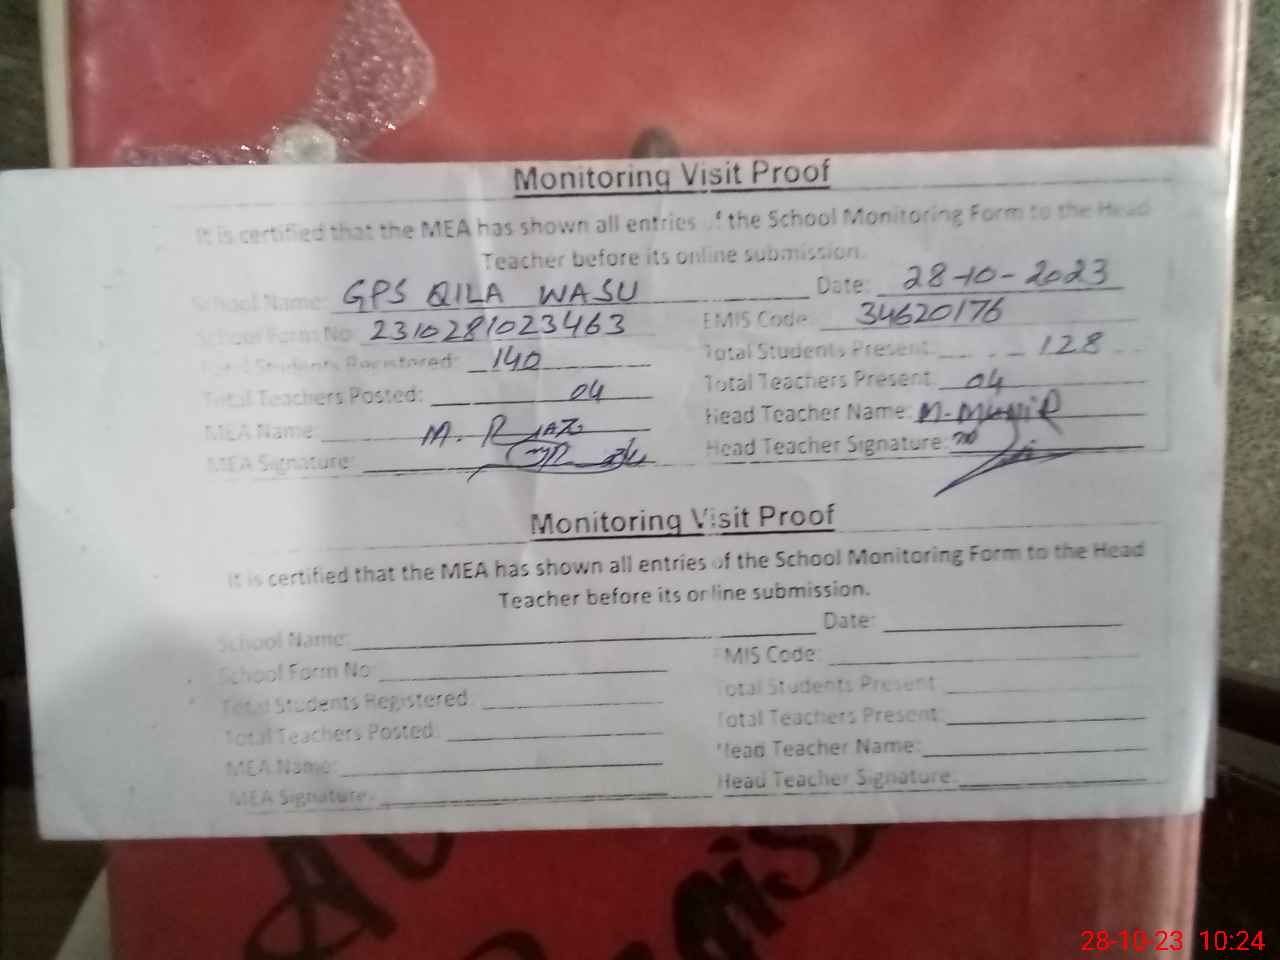 Monitoring Visit Proof
It is certified that the MEA has shown all entries of the School Monitoring Form to the Head
Teacher before its online submission.
School Name: GPS QILA WASU Date: 28-10-2023
School Form No: 2310281023463 EMIS Code: 34620176
Total Students Registered: 140 Total Students Present: 128
Total Teachers Posted: 04 Total Teachers Present: 04
MEA Name: M. RIAZ Head Teacher Name: M. MUNIR
MEA Signature: Head Teacher Signature:
Monitoring Visit Proof
It is certified that the MEA has shown all entries of the School Monitoring Form to the Head
Teacher before its online submission.
School Name: Date:
School Form No: EMIS Code:
Total Students Registered: Total Students Present:
Total Teachers Posted: Total Teachers Present:
MEA Name: Head Teacher Name:
MEA Signature: Head Teacher Signature:
28-10-23 10:24